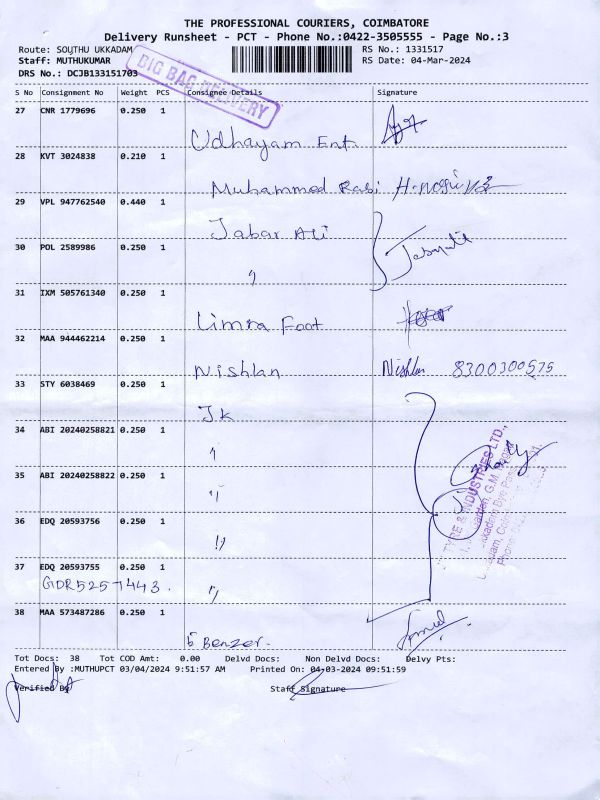 THE PROFESSIONAL COURIERS, COIMBATORE
Delivery Runsheet - PCT - Phone No.:0422-3505555 - Page No.:3
Route: SOUTHU UKKADAM RS No.: 1331517
Staff: MUTHUKUMAR RS Date: 04-Mar-2024
DRS No.: DCJB133151703
BIG BAG DELIVERY
S No Consignment No Weight PCS Consignee Details Signature
27 CNR 1779696 0.250 1
Udhayam Ent.
28 KVT 3024838 0.210 1
Muhammed Rasi
29 VPL 947762540 0.440 1
Jabar Ali
30 POL 2589986 0.250 1
"
31 IXM 505761340 0.250 1
Limra Foot
32 MAA 944462214 0.250 1
Nishlan Nishlan 8300300575
33 STY 6038469 0.250 1
J.K
34 ABI 20240258821 0.250 1
"
35 ABI 20240258822 0.250 1
"
36 EDQ 20593756 0.250 1
"
37 EDQ 20593755 0.250 1
GDR5257443. "
TYRE & INDUSTRIES LTD.,
38 MAA 573487286 0.250 1
Benzer.
Tot Docs: 38 Tot COD Amt: 0.00 Delvd Docs: Non Delvd Docs: Delvy Pts:
Entered By :MUTHUPCT 03/04/2024 9:51:57 AM Printed On: 04-03-2024 09:51:59
Verified By Staff Signature